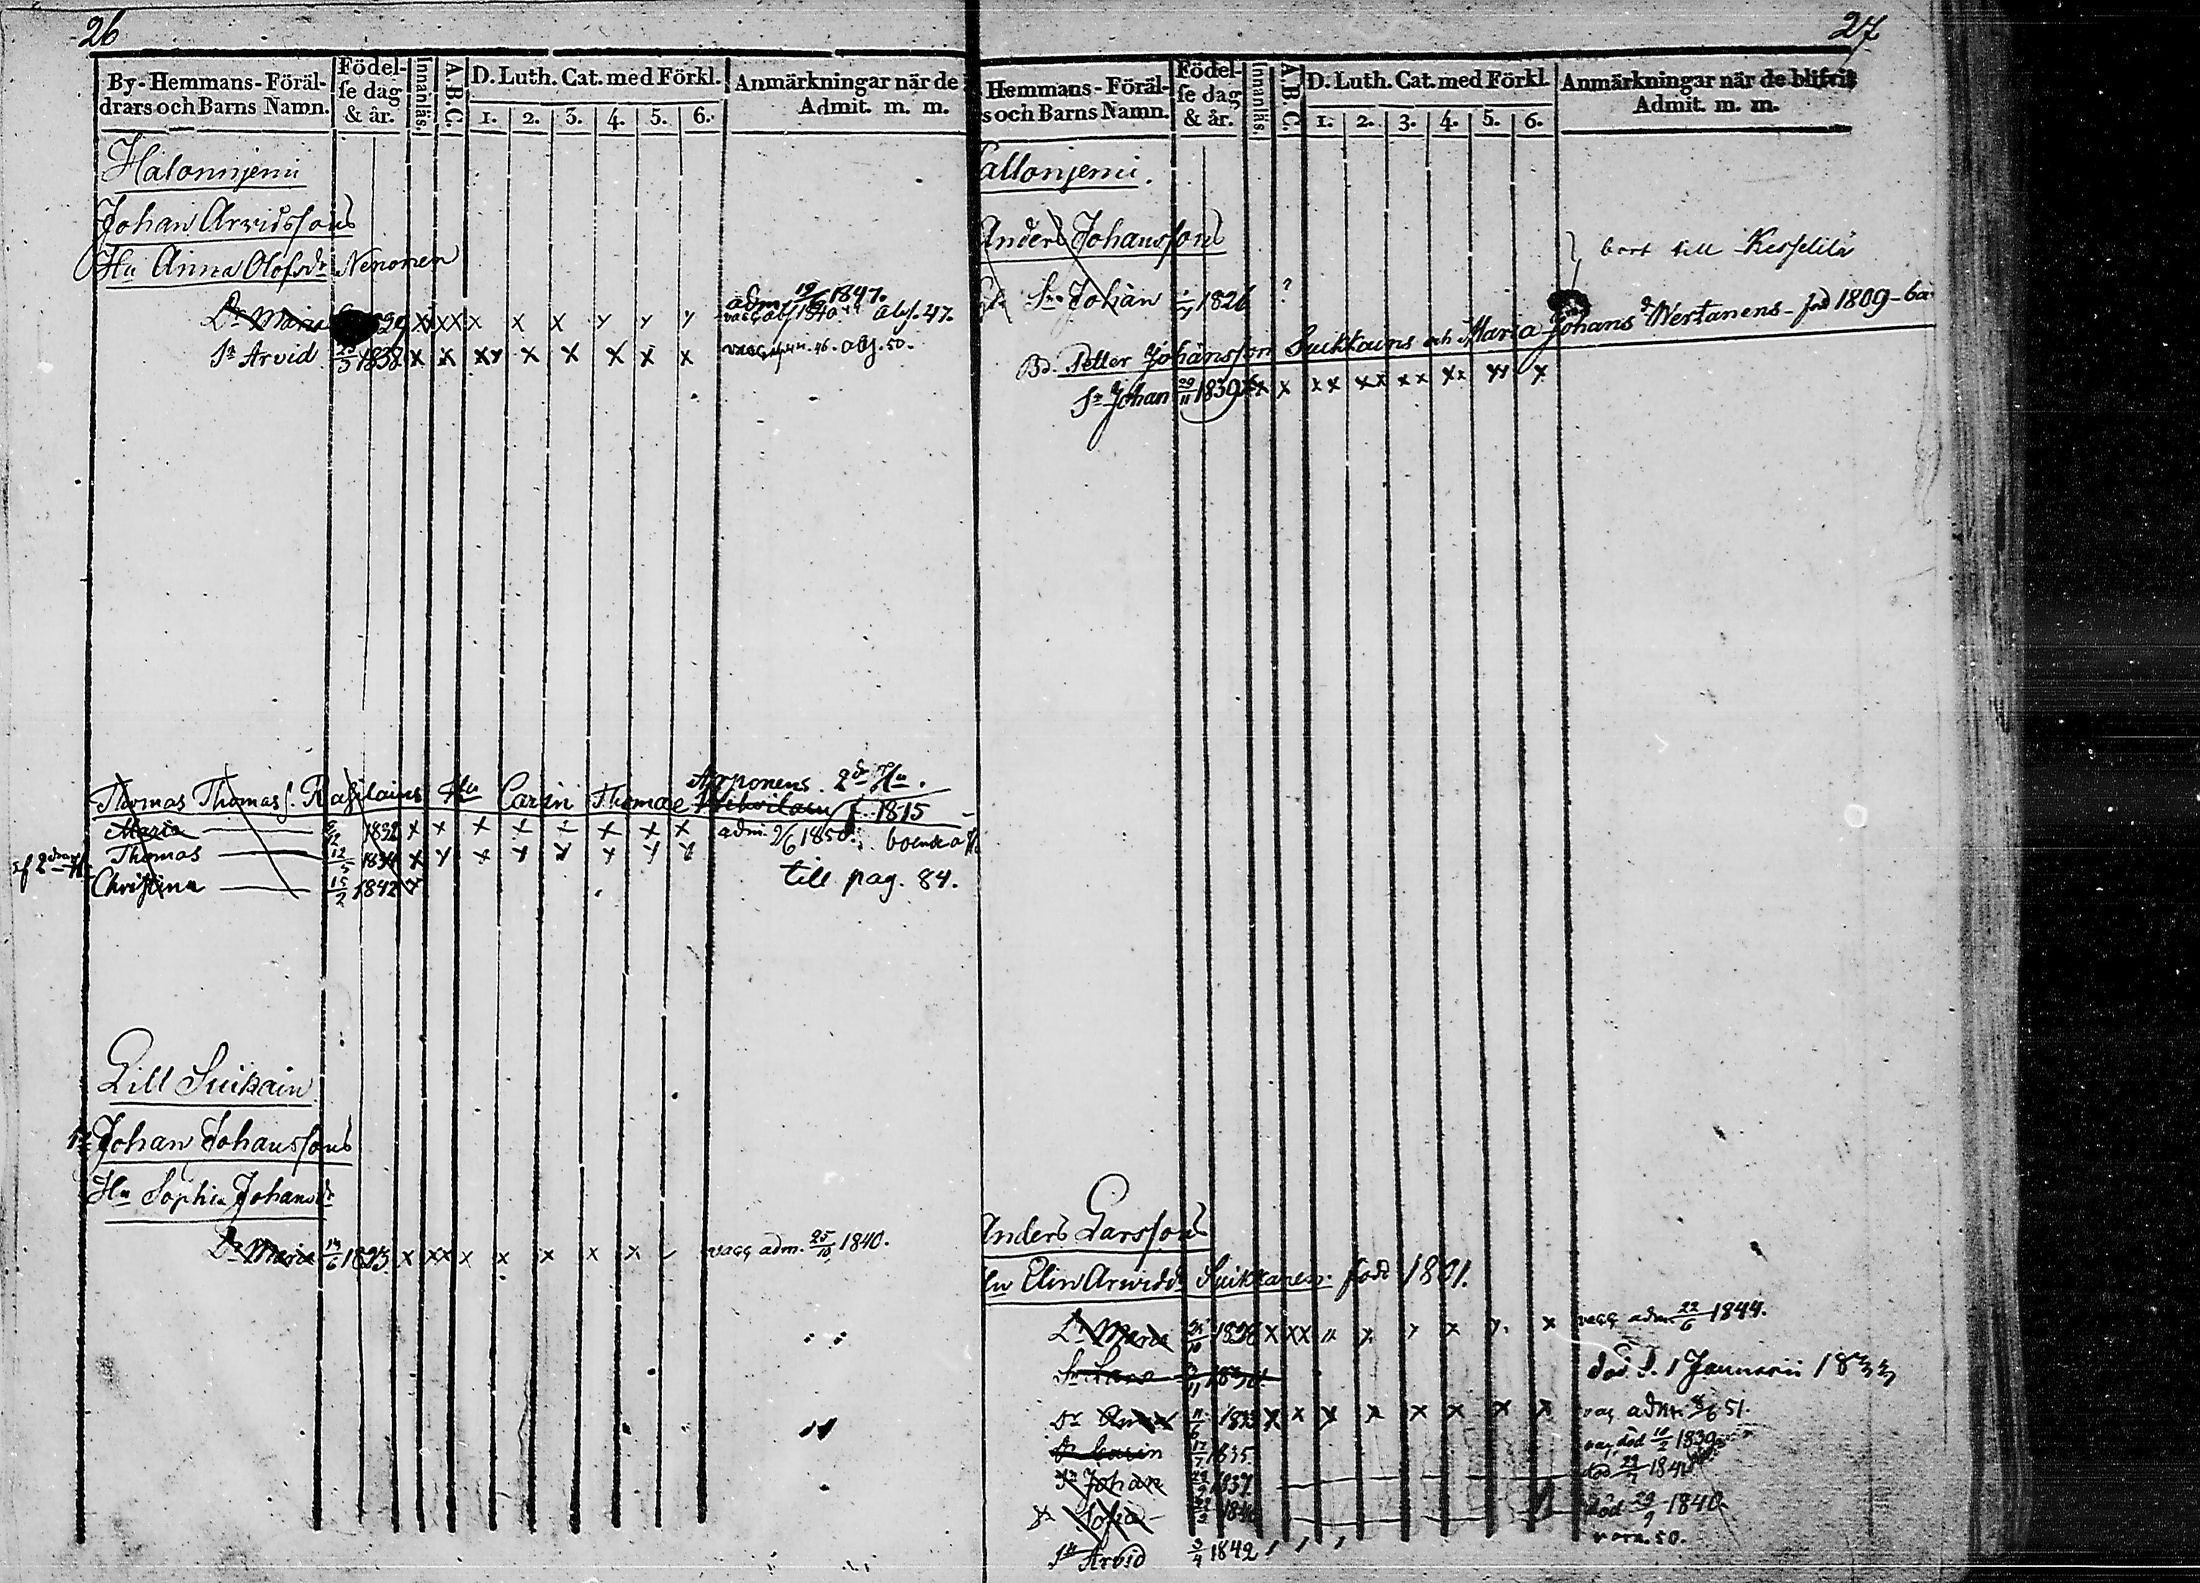 26
By-Hemmans-Föräl-
drars och Barns Namn.
Födel-
se dag
& år.
Innanläs.
A.B.C.
D. Luth. Cat. med Förkl.
1. 2. 3. 4. 5. 6.
Anmärkningar när de
Admit. m. m.
Halonnjemi
Johan Arvidssons
Hu Anna Olofsdr Nenonen
Dr Maria x x x x x x y y y adm. 19/6 1847. abs. 47.
Sn Arvid 1838 x x x y x x x x x 46. abs. 50.
Thomas Thomass. Rasilains Hu Carin Thomae Apponens 2dra Hu.
f. 1815
Maria 1832 x x x x x x x x adm. 9/6 1850. boende
Thomas 12/5 1834 x y x y y y y y
af 2dra H Christina 15/2 1842 x till pag. 84.
Lill Suikain
Johan Johanssons
Hu Sophia Johansdr
Dr Maria 14/6 1823 x x x x x x x x vacc adm. 25/10 1840.
27
Hemmans-Föräl-
s och Barns Namn.
Födel-
se dag
& år.
Innanläs.
A.B.C.
D. Luth. Cat. med Förkl.
1. 2. 3. 4. 5. 6.
Anmärkningar när de blifvit
Admit. m. m.
allonjemi.
Anders Johanssons
bort till Kesselilä
Sn Johan 1826 ?
Bd. Petter Johansson Suikkains och Maria Johans dr Wertanens - född 1809
Sn Johan 29/11 1839 x x x x x x x x x x x x y y x
Anders Larssons
Hu Elin Arvidsdr Suikkanen född 1801.
Dr Maria 1828 x x x x y x y. x vacc adm. 22/6 1844.
Sn Lars död d. 1 Januarii 1833
Dr Anna 11/6 1833 x x y x x x x x vac adm. 8/6 51.
Dr Carin 17/7 1835. vac död 10/2 1839
Sn Johan 1837 död
Dr Sofia 1840 död 29/9 1840
Sn Arvid 3/4 1842 / / / vorn. 50.